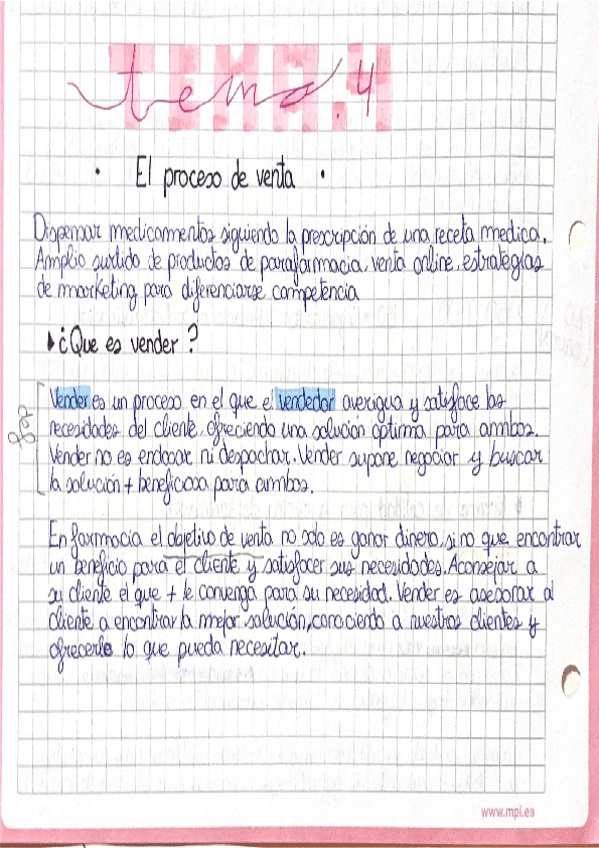 tema.4
TEMA.4
• El proceso de venta •
Dispensar medicamentos siguiendo la prescripción de una receta medica.
Amplio surtido de productos de parafarmacia, venta online, estrategias
de marketing para diferenciarse competencia
¿Que es vender?
def
Vender es un proceso en el que el vendedor averigua y satisface las
necesidades del cliente, ofreciendo una solución optima para ambos.
Vender no es endosar ni despachar. Vender supone negociar y buscar
la solución + beneficiosa para ambos.
En farmacia el objetivo de venta no solo es ganar dinero, si no que encontrar
un beneficio para el cliente y satisfacer sus necesidades. Aconsejar a
su cliente el que + le convenga para su necesidad. Vender es asesorar al
cliente a encontrar la mejor solución, conociendo a nuestros clientes y
ofrecerle lo que pueda necesitar.
www.mpl.es